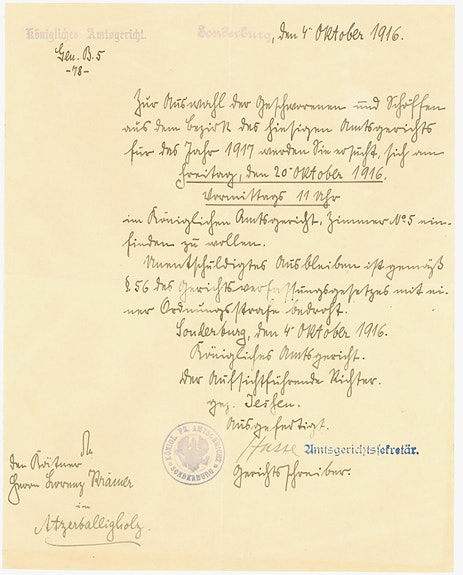 Königliches Amtsgericht.
Sonderburg, den 4 Oktober 1916.
Gen. B. 5
-78-
Zur Auswahl der Geschworenen und Schöffen
aus dem bezirk des hiesigen Amtsgerichts
für das Jahr 1917 werden Sie ersucht, sich am
Freitag, den 20 Oktober 1916.
Vormittags 11 Uhr
im Königlichen Amtsgericht, Zimmer No 5 ein-
finden zu wollen.
Unentschuldigtes Ausbleiben ist gemäß
§ 56 des Gerichtsverfassungsgesetzes mit ei-
ner Ordnungsstrafe bedroht.
Sonderburg, den 4 Oktober 1916.
Königliches Amtsgericht.
Der Aufsichtführende Richter.
gez. Jessen.
Ausgefertigt.
Amtsgerichtssekretär.
Gerichtsschreiber.
KÖNIGL. PR. AMTSGERICHT
SONDERBURG
An
den Kätner
Herrn Lorenz Krämer
in
Atzerballigholz.